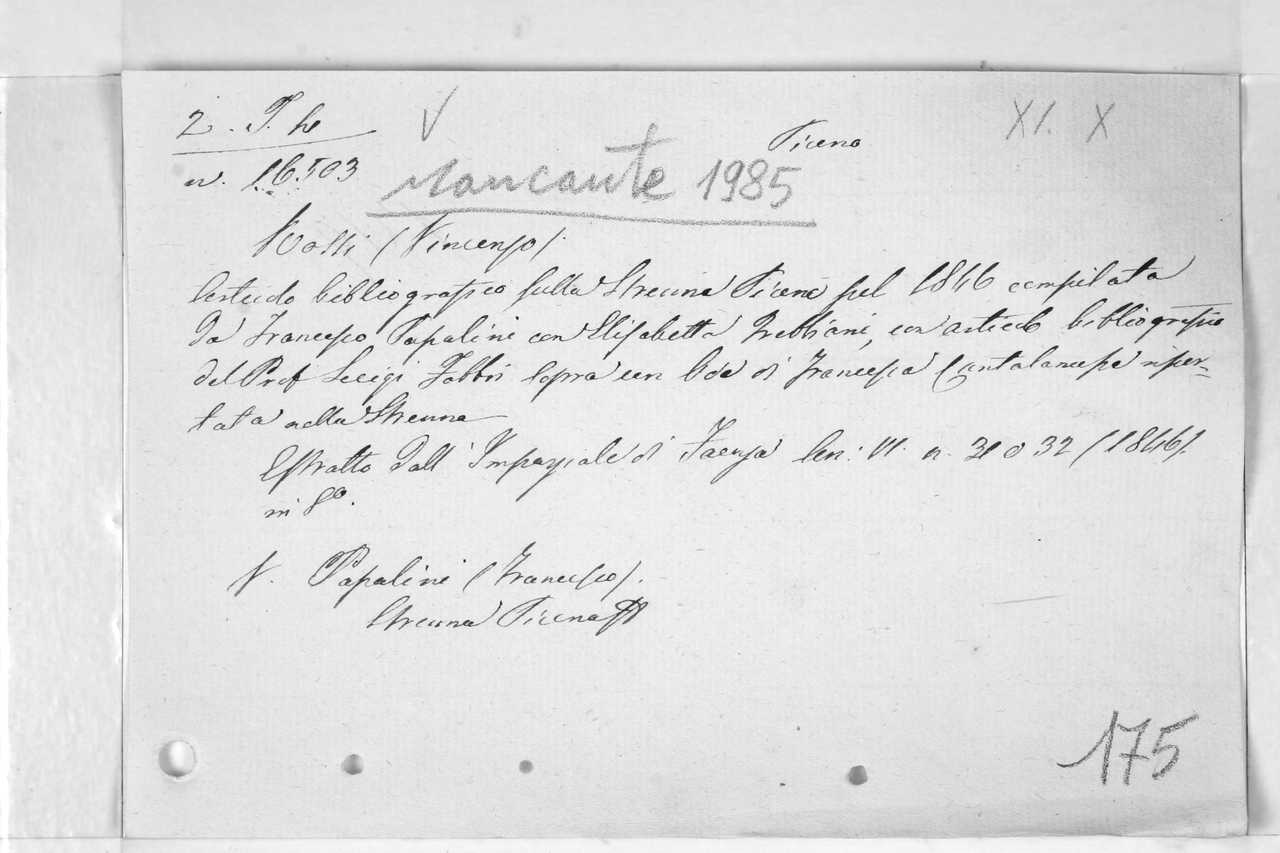 V
XI. X
Piceno
n. 16.503
Mancante 1985
Rossi (Vincenzo).
Articolo bibliografico sulla Strenna Picena pel 1846 compilata
da Francesco Papalini con Elisabetta Trebbiani, con articolo bibliografico
del Prof Luigi Fabbri sopra un Ode di Francesca Cantalamessa ripor-
tata nella Strenna
Estratto dall' Imparziale di Faenza An: VI. n. 31 o 32 (1846).
in 8º.
V. Papalini (Francesco).
Strenna Picena
175